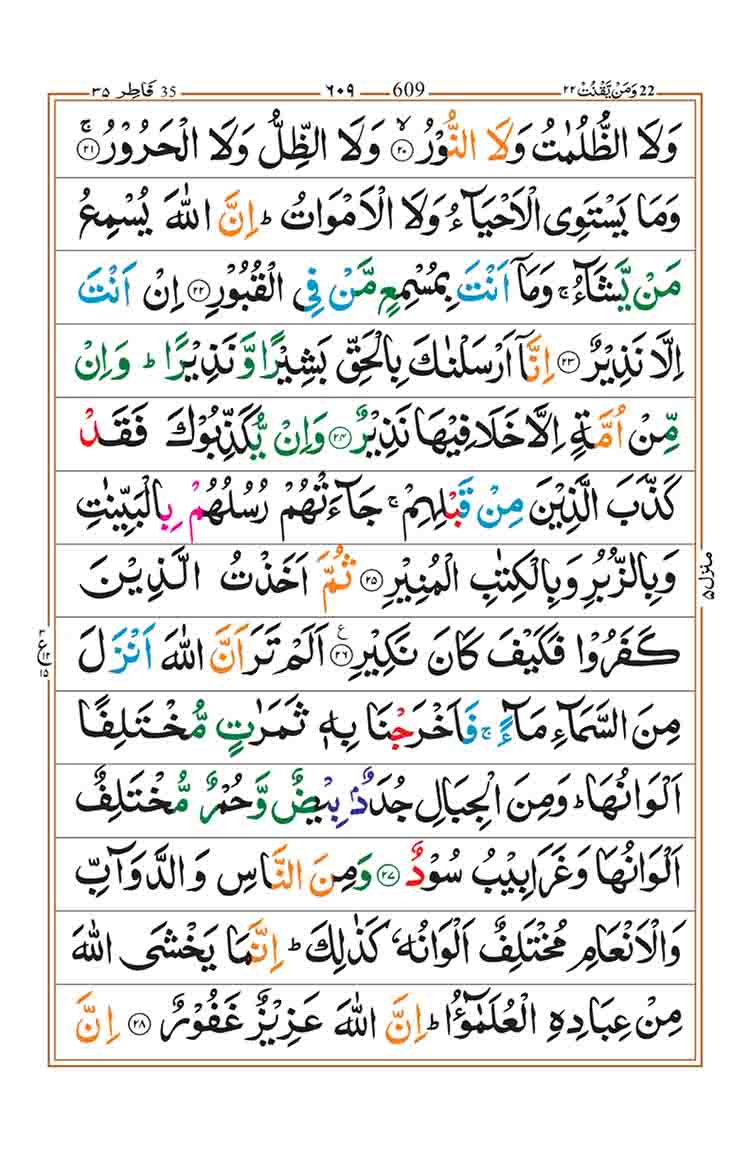 22 وَمَنْ يَّقْنُتْ ٢٢ 609 ٦٠٩ 35 فَاطِر ٣٥
وَلَا الظُّلُمٰتُ وَلَا النُّوْرُ ۙ‏﴿۲۰﴾ وَلَا الظِّلُّ وَلَا الْحَرُوْرُ ۚ‏﴿۲۱﴾
وَمَا يَسْتَوِى الْاَحْيَآءُ وَلَا الْاَمْوَاتُ ؕ اِنَّ اللّٰهَ يُسْمِعُ
مَنْ يَّشَآءُ ۚ وَمَاۤ اَنْتَ بِمُسْمِعٍ مَّنْ فِى الْقُبُوْرِ ﴿۲۲﴾ اِنْ اَنْتَ
اِلَّا نَذِيْرٌ ﴿۲۳﴾ اِنَّاۤ اَرْسَلْنٰكَ بِالْحَقِّ بَشِيْرًا وَّنَذِيْرًا ؕ وَاِنْ
مِّنْ اُمَّةٍ اِلَّا خَلَا فِيْهَا نَذِيْرٌ ﴿۲۴﴾ وَاِنْ يُّكَذِّبُوْكَ فَقَدْ
كَذَّبَ الَّذِيْنَ مِنْ قَبْلِهِمْ ۚ جَآءَتْهُمْ رُسُلُهُمْ بِالْبَيِّنٰتِ
وَبِالزُّبُرِ وَبِالْكِتٰبِ الْمُنِيْرِ ﴿۲۵﴾ ثُمَّ اَخَذْتُ الَّذِيْنَ
كَفَرُوْا فَكَيْفَ كَانَ نَكِيْرِ ﴿۲۶﴾ ع اَلَمْ تَرَ اَنَّ اللّٰهَ اَنْزَلَ
مِنَ السَّمَآءِ مَآءً ۚ فَاَخْرَجْنَا بِهٖ ثَمَرٰتٍ مُّخْتَلِفًا
اَلْوَانُهَا ؕ وَمِنَ الْجِبَالِ جُدَدٌۢ بِيْضٌ وَّحُمْرٌ مُّخْتَلِفٌ
اَلْوَانُهَا وَغَرَابِيْبُ سُوْدٌ ﴿۲۷﴾ وَمِنَ النَّاسِ وَالدَّوَآبِّ
وَالْاَنْعَامِ مُخْتَلِفٌ اَلْوَانُهٗ كَذٰلِكَ ؕ اِنَّمَا يَخْشَى اللّٰهَ
مِنْ عِبَادِهِ الْعُلَمٰٓؤُا ؕ اِنَّ اللّٰهَ عَزِيْزٌ غَفُوْرٌ ﴿۲۸﴾ اِنَّ
منزل ۵